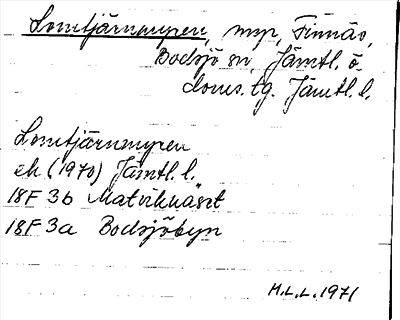 Lomtjärnmyren, myr, Finnäs,
Bodsjö sn, Jämtl. ö.
doms. tg. Jämtl. l.
Lomtjärnmyren
ek (1970) Jämtl. l.
18F 3b Matviknäset
18F 3a Bodsjöbyn
M.L.L. 1971